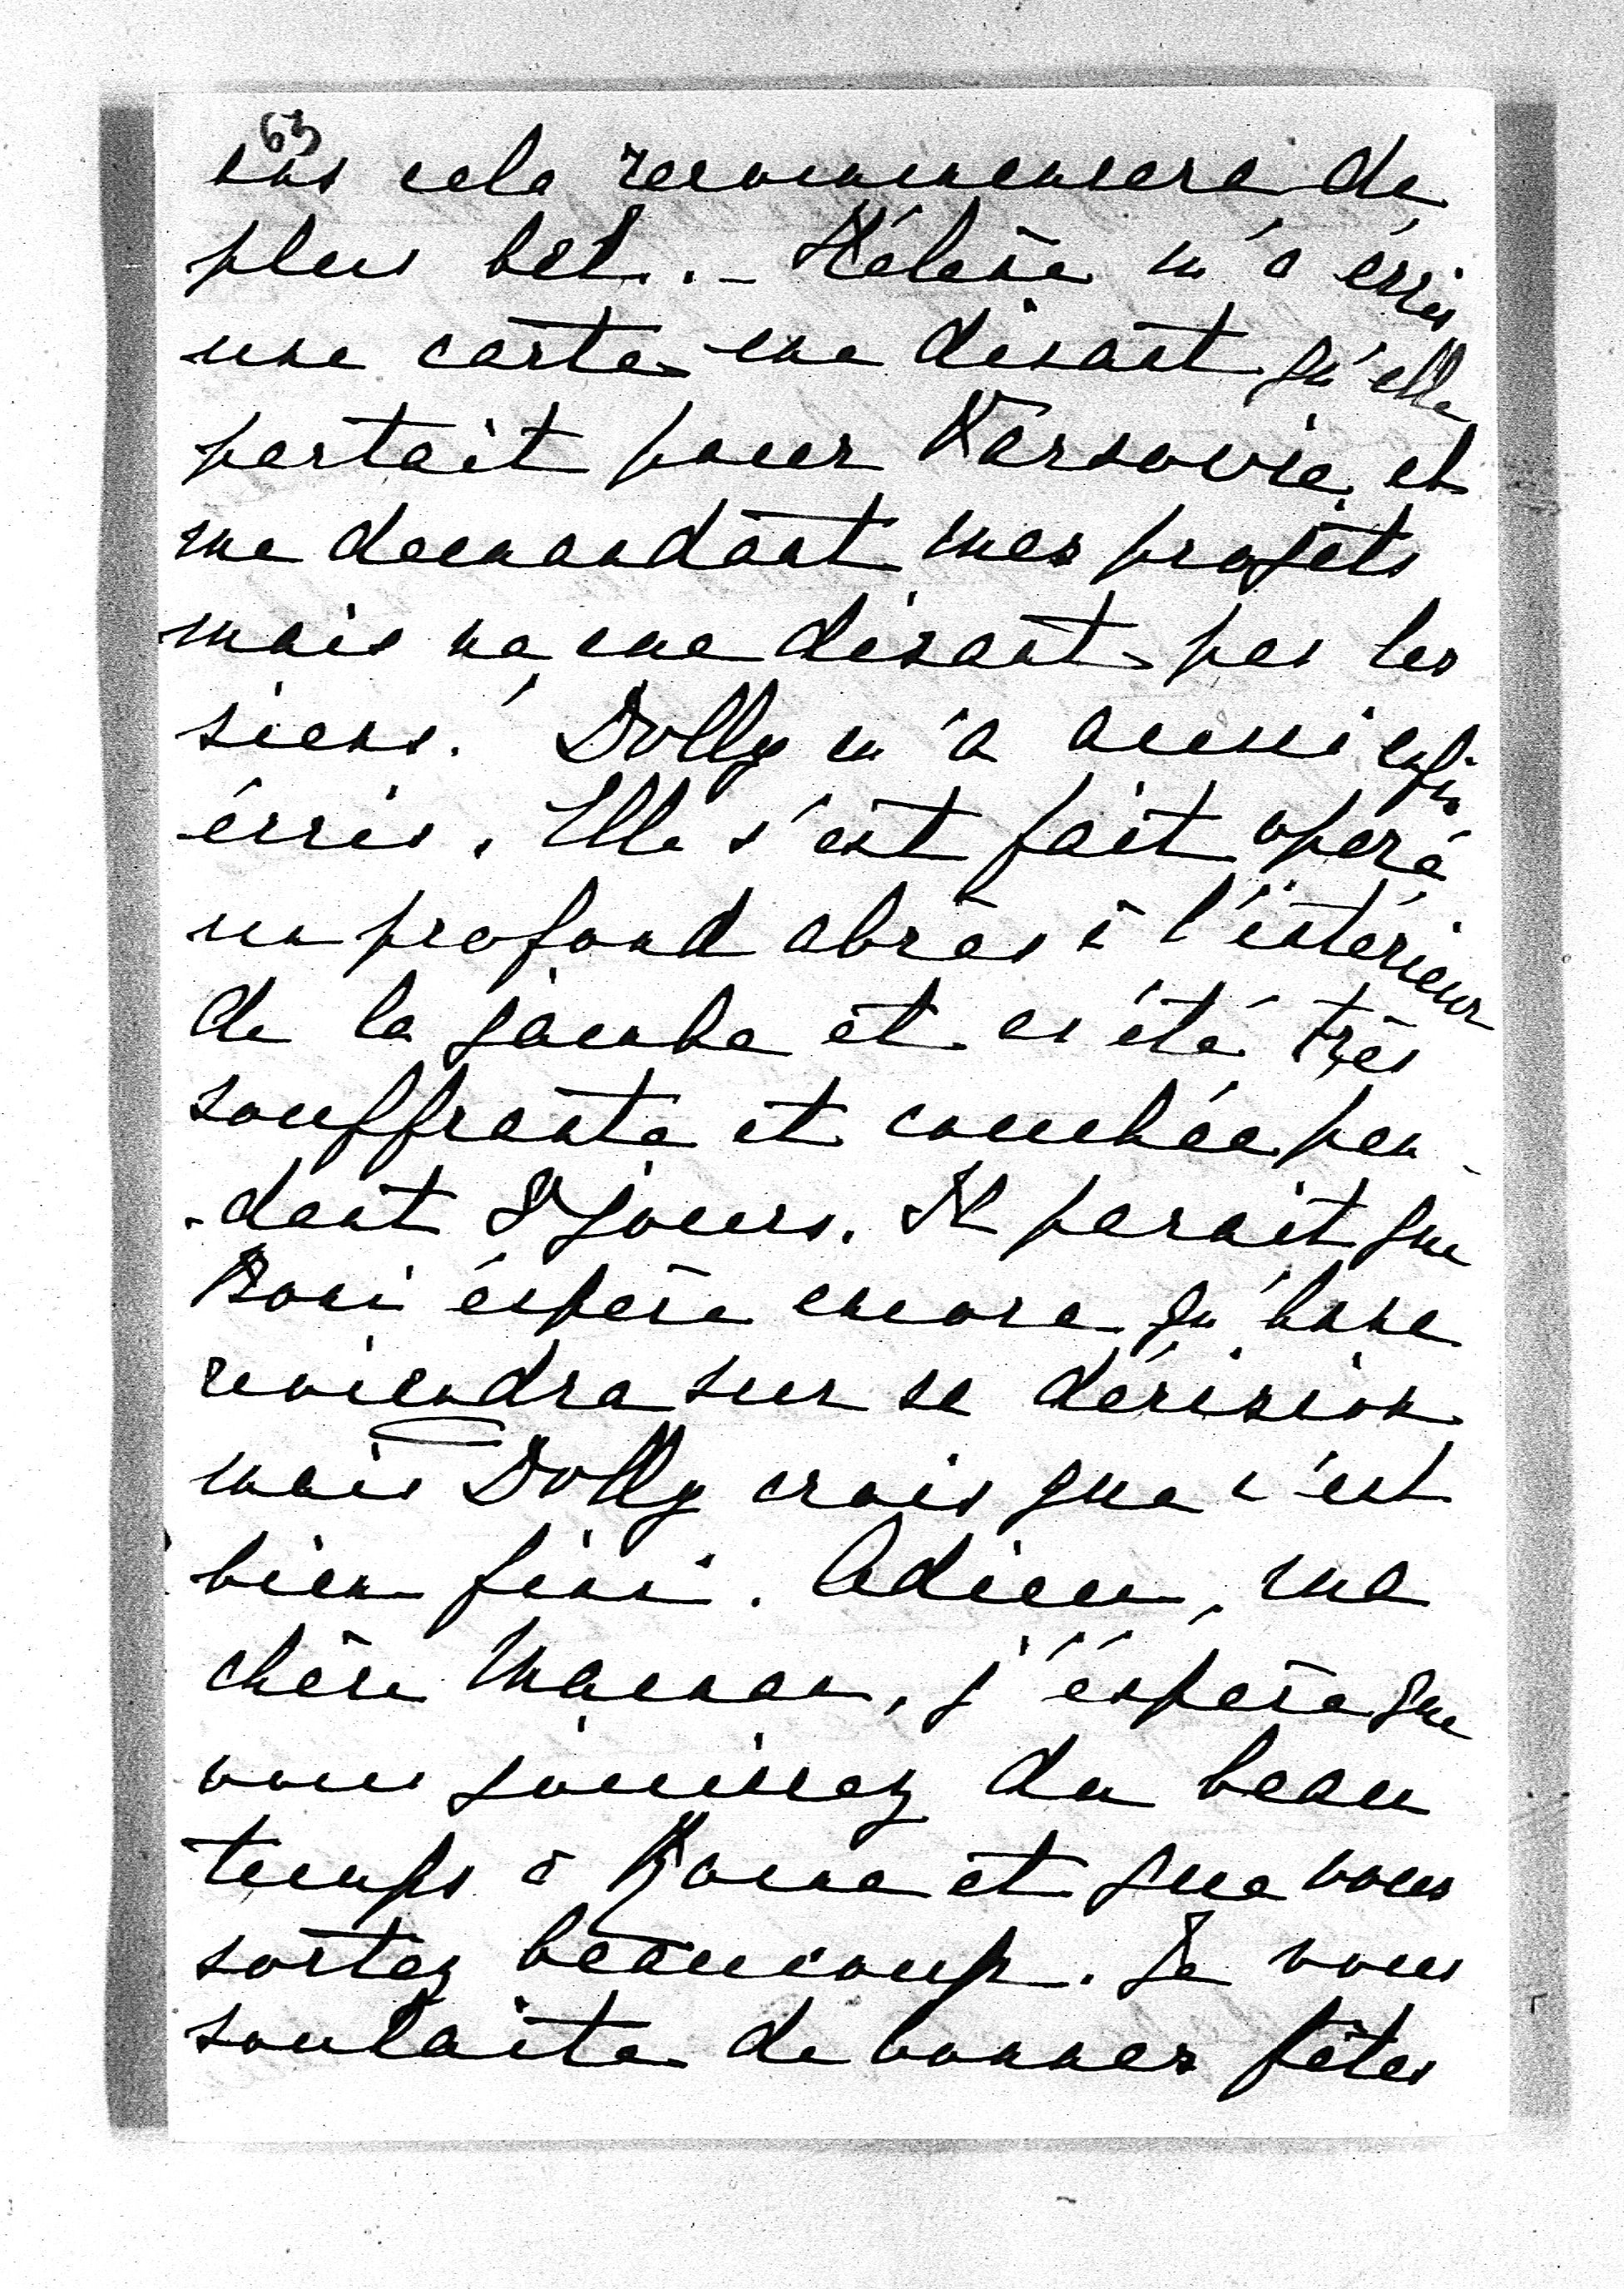 63
ens cela recommencera de
plus bel. - Hélène m'a écris
une carte me disant qu'elle
partait pour Varsovie et
me demandant mes projets
mais ne me disant pas les
siens. Dolly m'a aussi enfin
écris. Elle s'est fait opéré
un profond abcès à l'intérieur
de la jambe et as été très
souffrante et couchée pen-
-dant 8 jours. Il parait que
Boni éspère encore qu'
reviendra sur sa décision
mais Dolly crois que c'est
bien fini. Adieu, ma
chère Maman, j'éspère que
vous jouissez du beau
temps à Rome et que vous
sortez beaucoup. Je vous
souhaite de bonnes fêtes